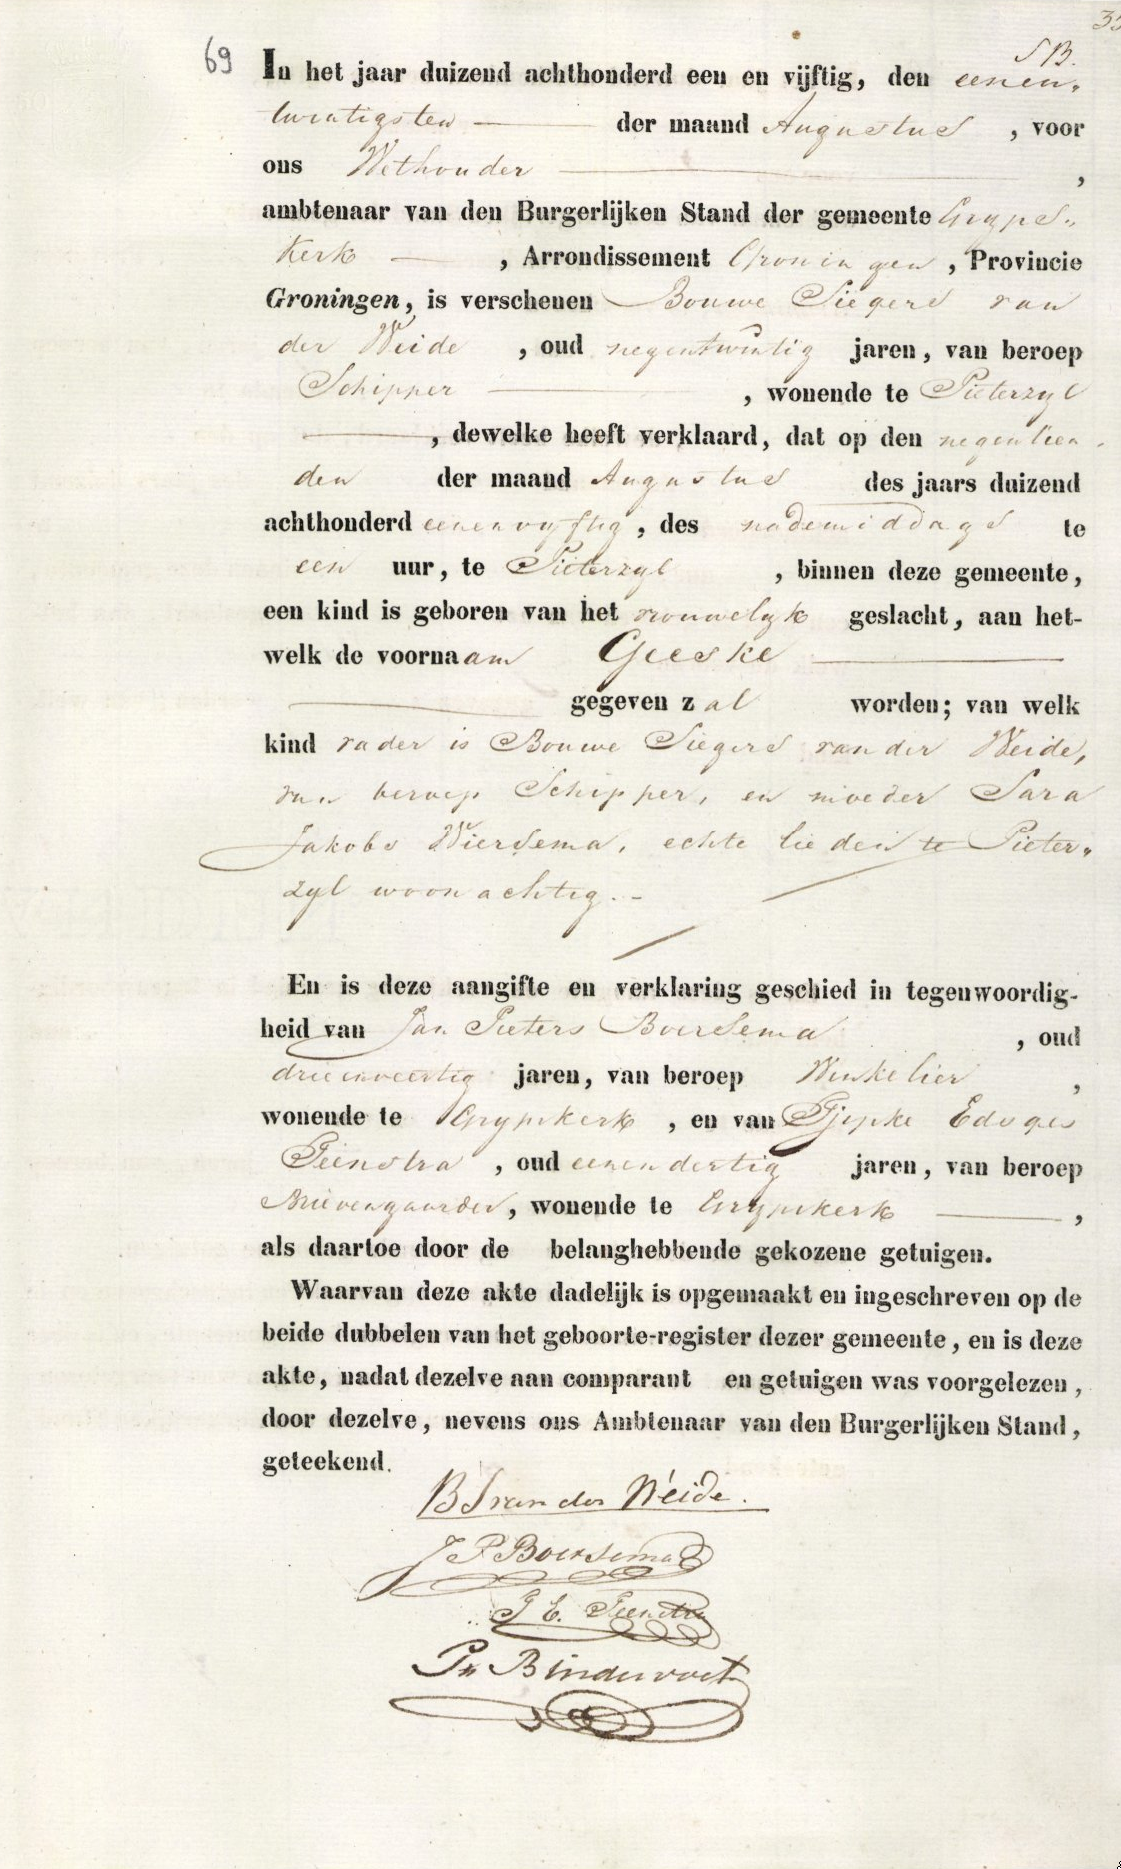 35
SB.
69 In het jaar duizend achthonderd een en vijftig, den eenen„
twintigsten der maand Augustus , voor
ons Wethouder ,
ambtenaar van den Burgerlijken Stand der gemeente Gryps„
kerk , Arrondissement Groningen , Provincie
Groningen, is verschenen Bouwe Siegers van
der Weide , oud negentwintig jaren, van beroep
Schipper , wonende te Pieterzyl
, dewelke heeft verklaard, dat op den negentien
den der maand Augustus des jaars duizend
achthonderd eenenvyftig , des nademiddags te
een uur, te Pieterzyl , binnen deze gemeente,
een kind is geboren van het vrouwelyk geslacht, aan het-
welk de voornaam Geeske
gegeven zal worden; van welk
kind vader is Bouwe Siegers van der Weide,
van beroep Schipper, en moeder Sara
Jakobs Wiersema, echte lieden te Pieter„
zyl woonachtig.-
En is deze aangifte en verklaring geschied in tegenwoordig-
heid van Jan Pieters Boersema , oud
drieenveertig jaren, van beroep Winkelier ,
wonende te Grypskerk , en van Edsges
Teenstra , oud eenendertig jaren, van beroep
, wonende te Grypskerk ,
als daartoe door de belanghebbende gekozene getuigen.
Waarvan deze akte dadelijk is opgemaakt en ingeschreven op de
beide dubbelen van het geboorte-register dezer gemeente, en is deze
akte, nadat dezelve aan comparant en getuigen was voorgelezen,
door dezelve, nevens ons Ambtenaar van den Burgerlijken Stand,
geteekend.
B S van der Weide.
J P Boersema
E. Teenstra
Bindervoet